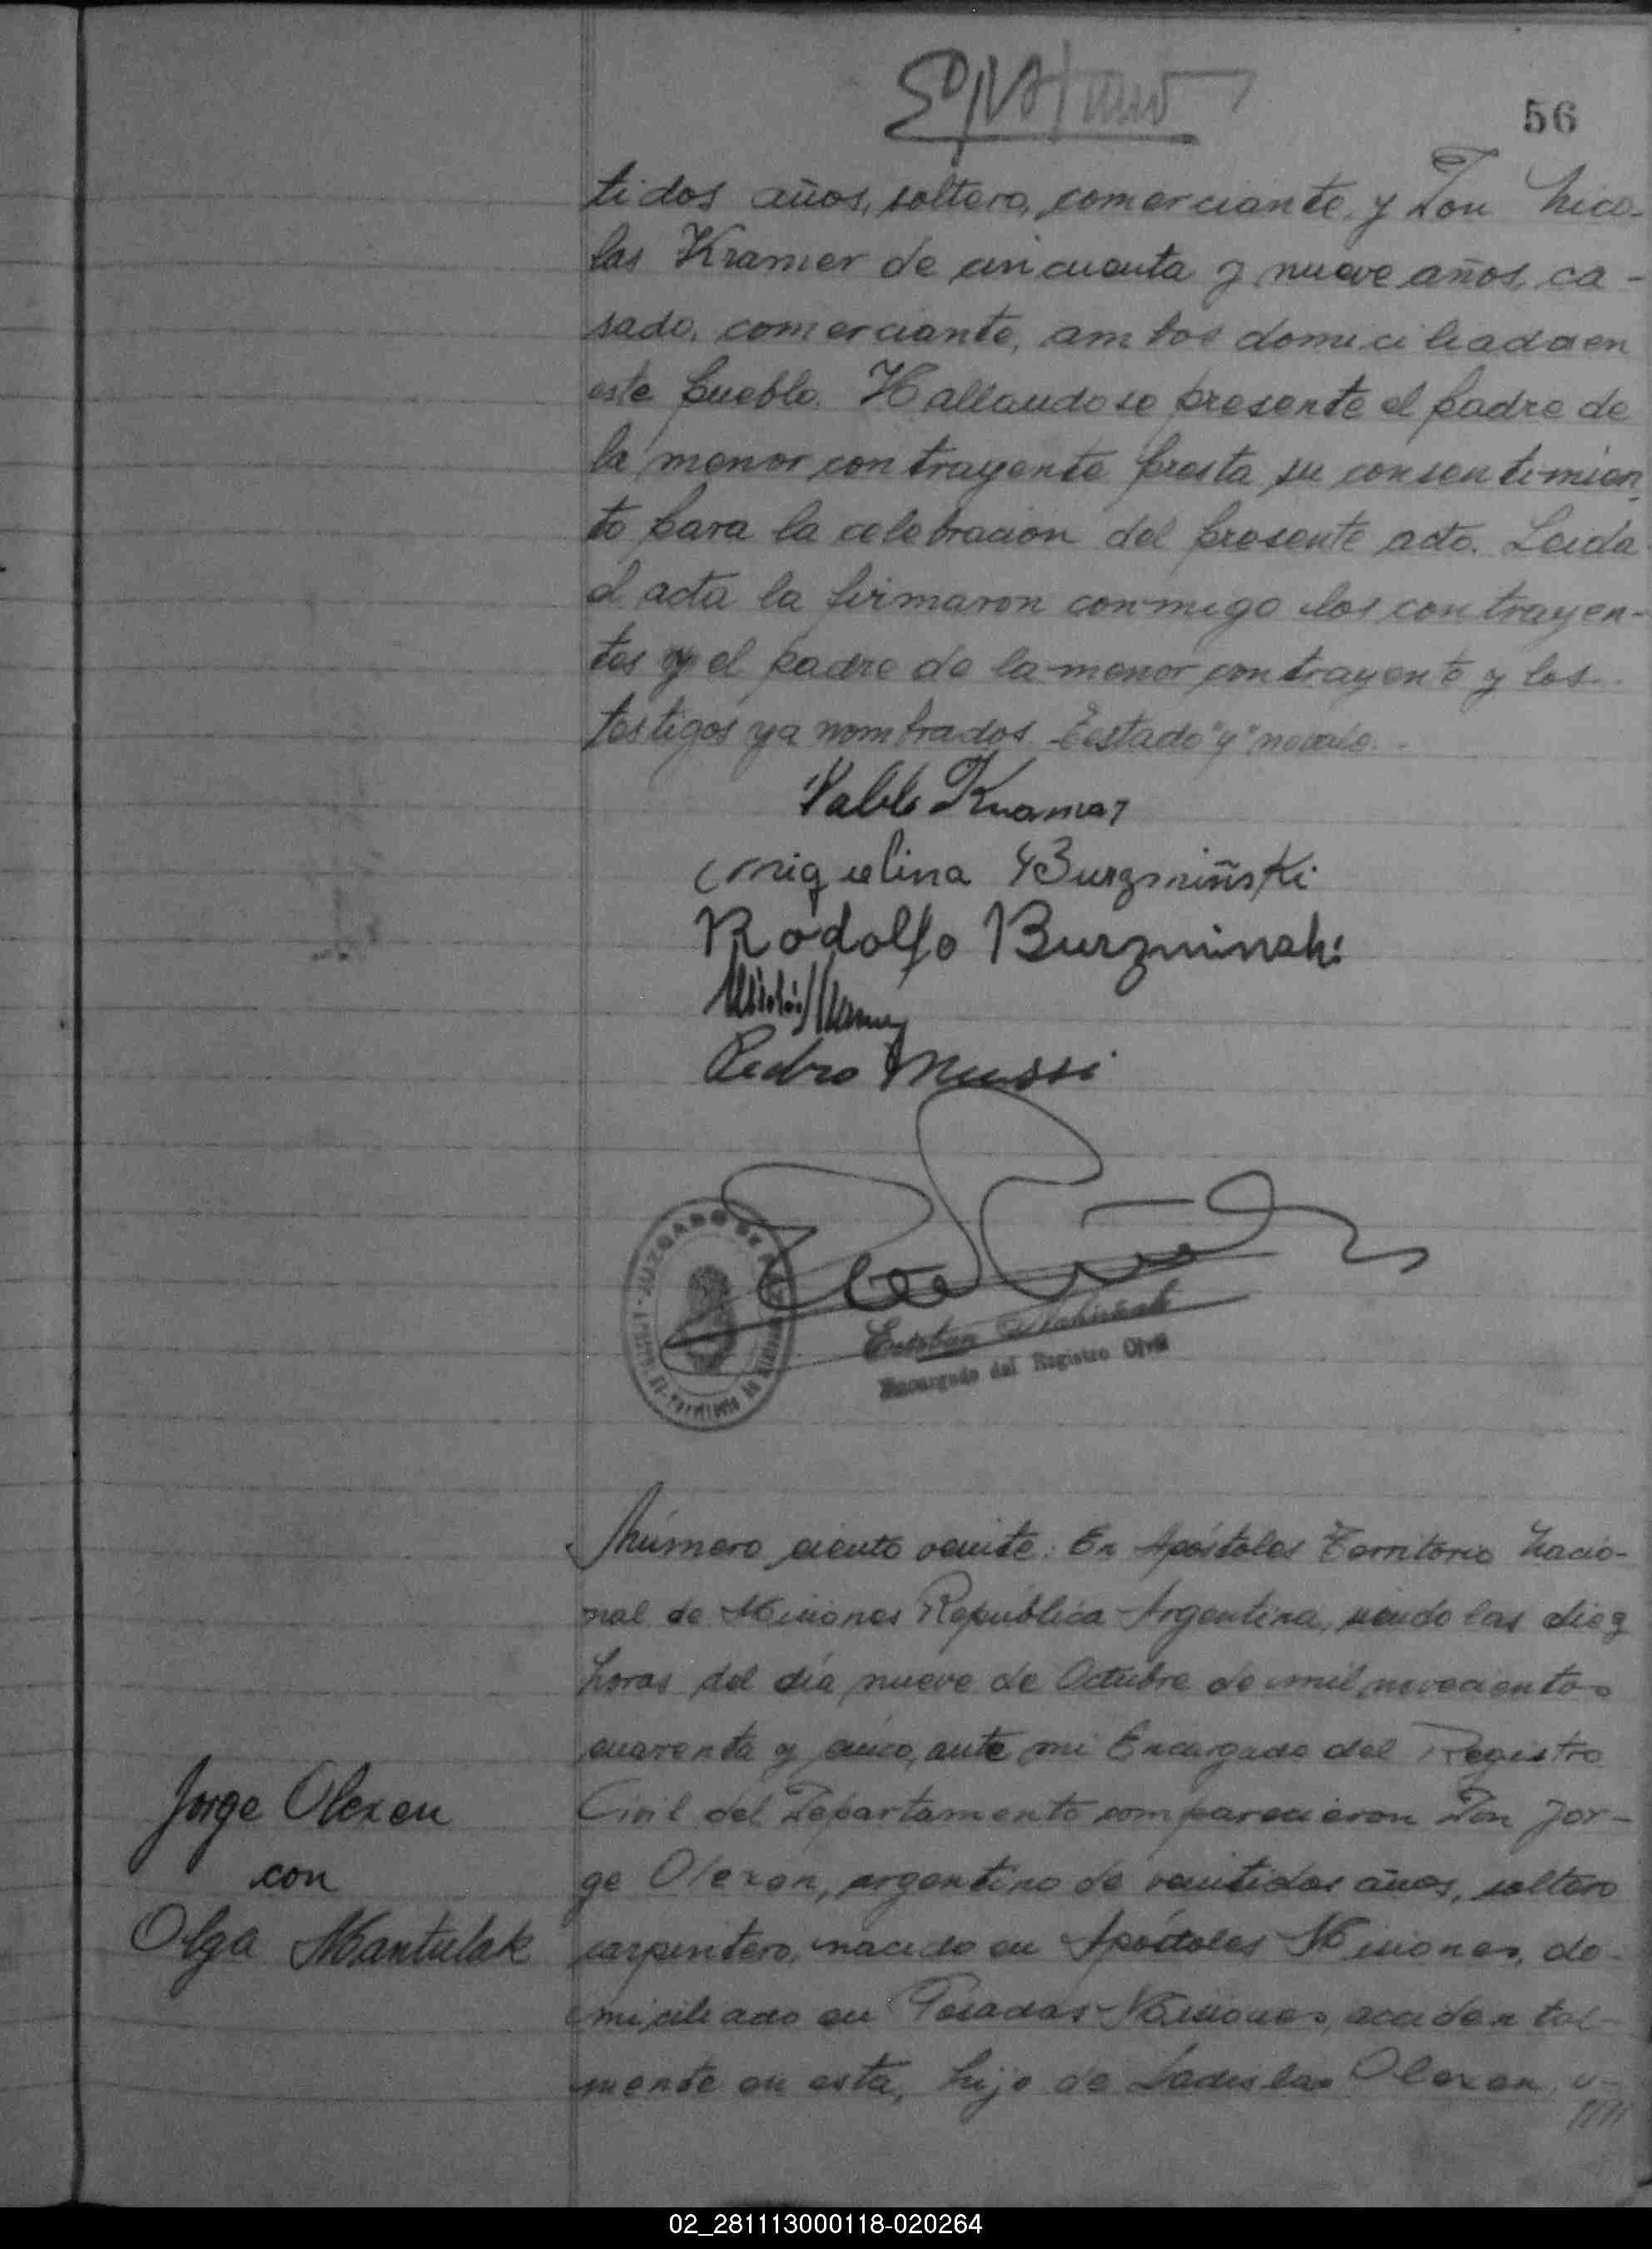 56
tidos años, soltero, comerciante, y Don Nico-
las Kramer de cincuenta y nueve años, ca-
sado, comerciante, ambos domiciliados en
este pueblo. Hallandose presente el padre de
la menor contrayente presta su consentimien-
to para la celebracion del presente acto. Leida
el acta la firmaron conmigo los contrayen-
tes y el padre de la menor contrayente y los
testigos ya nombrados. Testado "y" no vale.-
Pablo Kramer
Miguelina Burzmiñski
Rodolfo Burzminski
Pedro Mussi
JUZGADO DE PAZ
Esteban
Encargado del Registro Civil
Número ciento veinte: En Apóstoles Territorio Nacio-
nal de Misiones República Argentina, siendo las diez
horas del día nueve de Octubre de mil novecientos
cuarenta y cinco, ante mi Encargado del Registro
Civil del Departamento comparecieron Don Jor-
ge Olexen, argentino de veintidos años, soltero
carpintero, nacido en Apóstoles Misiones, do-
miciliado en Posadas-Misiones, accidental-
mente en esta, hijo de Ladislao Olexen, u-
Jorge Olexen
con
Olga Mantulak
02_281113000118-020264